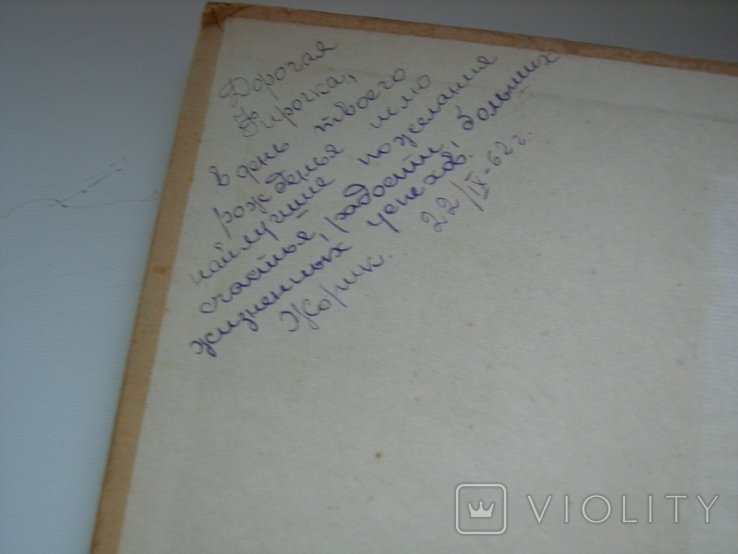 Дорогая
Кирочка,
в день твоего
рожденья шлю
найлучшие пожелания
счастья, радости, больших
жизненных успехов!
Жорик. 22/IX-62 г.
VIOLITY